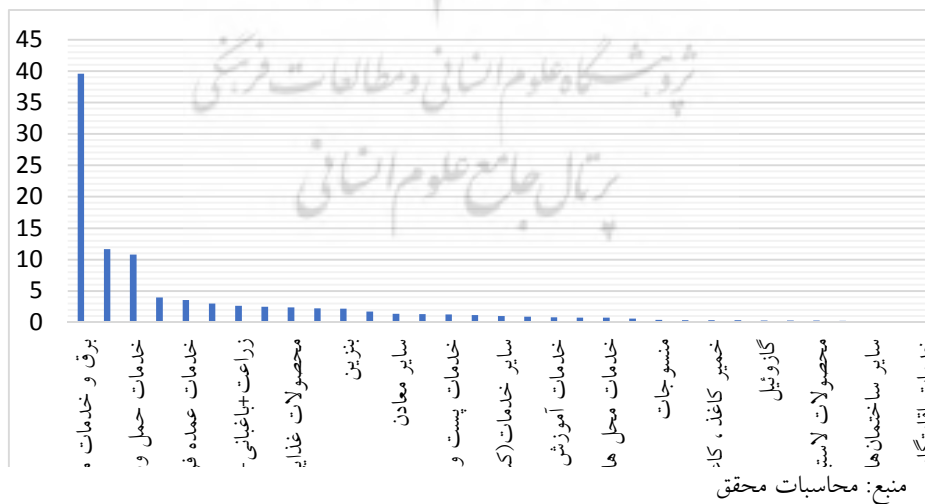 پژوهشگاه علوم انسانی و مطالعات فرهنگی
پرتال جامع علوم انسانی
45
40
35
30
25
20
15
10
5
0
برق و خدمات
خدمات حمل و
خدمات عمده فر
زراعت+باغبانی-
محصولات غذایی
بنزین
سایر معادن
خدمات پست و
سایر خدمات(ک
خدمات آموزش
خدمات محل ها
منسوجات
خمیر کاغذ ، کاغ
گازوئیل
محصولات لاستی
سایر ساختمان‌ها
منبع: محاسبات محقق